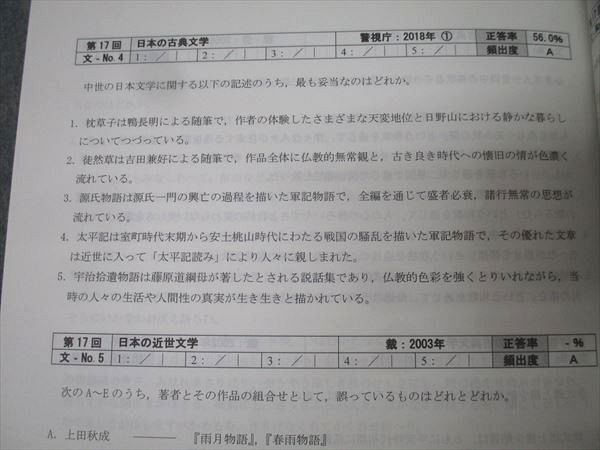 第17回 日本の古典文学 警視庁：2018年 ① 正答率 56.0%
文-No.4 1：／ 2：／ 3：／ 4：／ 5：／ 頻出度 A
中世の日本文学に関する以下の記述のうち，最も妥当なのはどれか。
1. 枕草子は鴨長明による随筆で，作者の体験したさまざまな天変地位と日野山における静かな暮らし
についてつづっている。
2. 徒然草は吉田兼好による随筆で，作品全体に仏教的無常観と，古き良き時代への懐旧の情が色濃く
流れている。
3. 源氏物語は源氏一門の興亡の過程を描いた軍記物語で，全編を通じて盛者必衰，諸行無常の思想が
流れている。
4. 太平記は室町時代末期から安土桃山時代にわたる戦国の騒乱を描いた軍記物語で，その優れた文章
は近世に入って「太平記読み」により人々に親しまれた。
5. 宇治拾遺物語は藤原道綱母が著したとされる説話集であり，仏教的色彩を強くとりいれながら，当
時の人々の生活や人間性の真実が生き生きと描かれている。
第17回 日本の近世文学 裁：2003年 正答率 -%
文-No.5 1：／ 2：／ 3：／ 4：／ 5：／ 頻出度 A
次のA～Eのうち，著者とその作品の組合せとして，誤っているものはどれとどれか。
A. 上田秋成 ――― 『雨月物語』，『春雨物語』